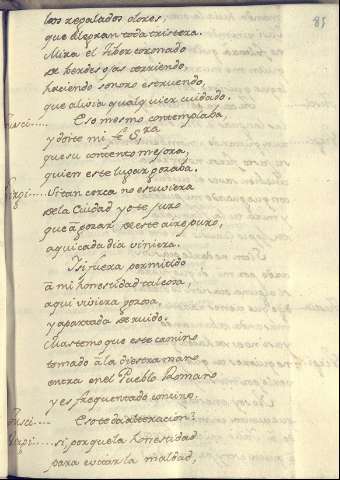 85
los regalados olores,
que alegran toda tristeza.
Mira el Tiber coronado
de berdes ojas corriendo,
haciendo sonoro estruendo,
que alivia qualquier cuidado.
Eso mesmo contemplaba,
y doite mi fe Sra
que su contento mejora,
quien este lugar gozaba.
Si tan cerca no estuviera
de la Ciudad yo te juro
que a gozar de este aire puro,
aqui cada dia viniera.
I si fuera permitido
â mi honestidad talcosa,
aqui viviera gozosa,
y apartada de ruido.
Mas temo que este camino
tomado â la diestra mano
entra en el Pueblo Romano
y es frequentado contino.
Eso te da alteracion?
si porque la honestidad
para evitar la maldad,